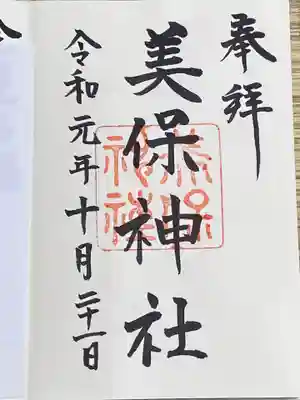 奉拝
美保神社
美保神社
令和元年十月二十一日